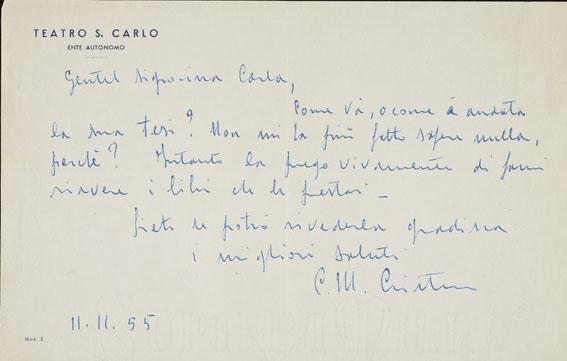 TEATRO S. CARLO
ENTE AUTONOMO
Gentil Signorina Carla,
Come và, o come è andata
la sua tesi? Non mi ha più fatto sapere nulla,
perchè? Intanto la prego vivamente di farmi
riavere i libri che le prestai _
Lieto se potrò rivederla gradisca
i migliori saluti
C. M.
11.11.55
Mod. 2